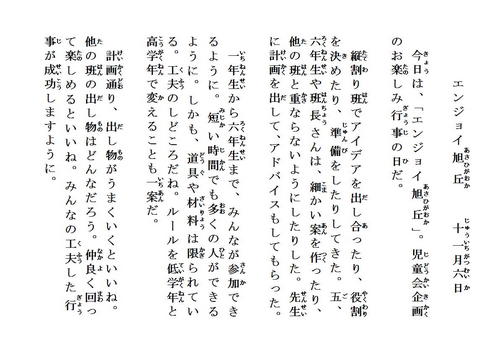 エンジョイ旭丘　十一月六日
今日は、「エンジョイ旭丘」。児童会企画
のお楽しみ行事の日だ。
縦割り班でアイデアを出し合ったり、役割
を決めたり、準備をしたりしてきた。五、
六年生や班長さんは、細かい案を作ったり、
他の班と重ならないようにしたりした。先生
に計画を出して、アドバイスもしてもらった。
一年生から六年生まで、みんなが参加でき
るように。短い時間でも多くの人ができる
ように。しかも、道具や材料は限られてい
る。工夫のしどころだね。ルールを低学年と
高学年で変えることも一案だ。
計画通り、出し物がうまくいくといいね。
他の班の出し物はどんなだろう。仲良く回っ
て楽しめるといいね。みんなの工夫した行
事が成功しますように。